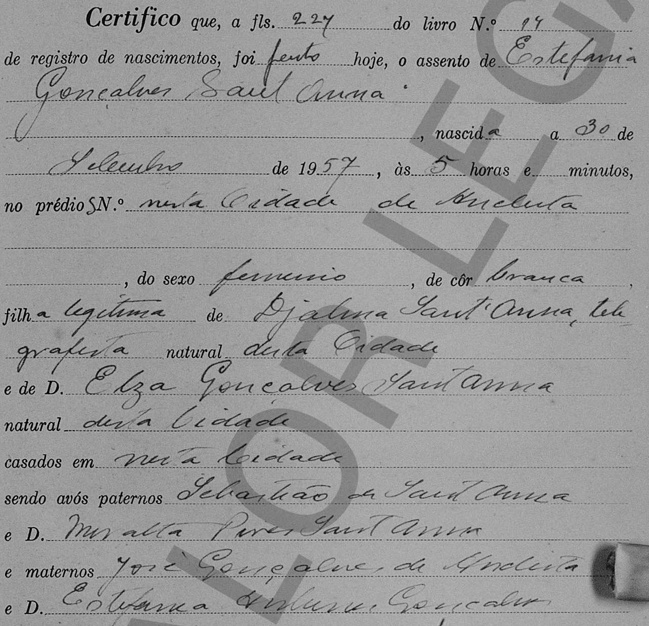 Certifico que, a fls. 227 do livro N.º 14
de registro de nascimentos, foi feito hoje, o assento de Estefania
Gonçalves Sant'Anna
, nascida a 30 de
Setembro de 1957, às 5 horas e minutos,
no prédio SN.º nesta Cidade de
, do sexo feminino, de côr branca,
filha legitima de Djalma Sant'Anna, tele
grafista natural desta Cidade
e de D. Elza Gonçalves Sant'Anna
natural desta Cidade
casados em nesta Cidade
sendo avós paternos Sebastião de Sant'Anna
e D. Pires Sant'Anna
e maternos José Gonçalves de
e D. Estefania Gonçalves
VALOR LEGA